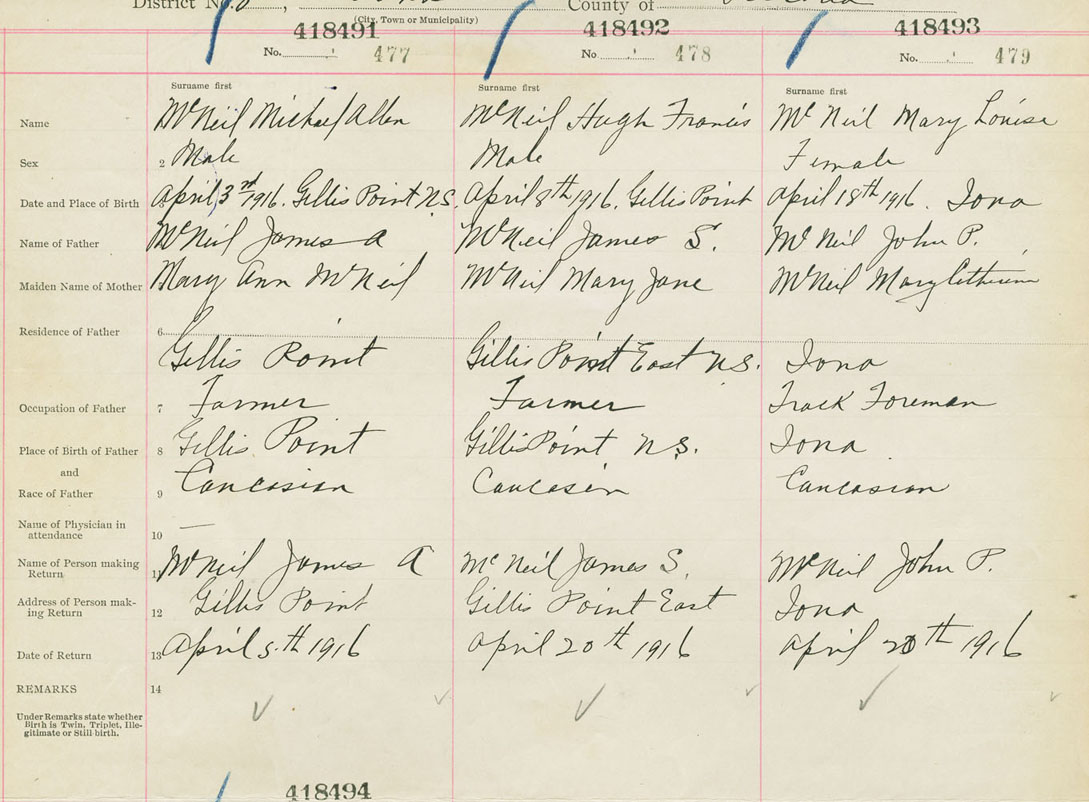 District No. 8, County of
(City, Town or Municipality)
418491 418492 418493
No. 477 No. 478 No. 479
Surname first Surname first Surname first
Name McNeil Michael Allen McNeil Hugh Francis McNeil Mary Louise
Sex 2 Male Male Female
Date and Place of Birth April 3rd 1916. Gillis Point N.S. April 8th 1916. Gillis Point April 18th 1916. Iona
Name of Father McNeil James A McNeil James S. McNeil John P.
Maiden Name of Mother Mary Ann McNeil McNeil Mary Jane McNeil Mary Catherine
Residence of Father 6
Gillis Point Gillis Point East N.S. Iona
Occupation of Father 7 Farmer Farmer Track Foreman
Place of Birth of Father 8 Gillis Point Gillis Point N.S. Iona
and
Race of Father 9 Caucasian Caucasin Caucasian
Name of Physician in
attendance 10 —
Name of Person making
Return 11 McNeil James A McNeil James S. McNeil John P.
Address of Person mak-
ing Return 12 Gillis Point Gillis Point East Iona
Date of Return 13 April 5th 1916 April 20th 1916 April 20th 1916
REMARKS 14
Under Remarks state whether
Birth is Twin, Triplet, Ille-
gitimate or Still-birth.
418494